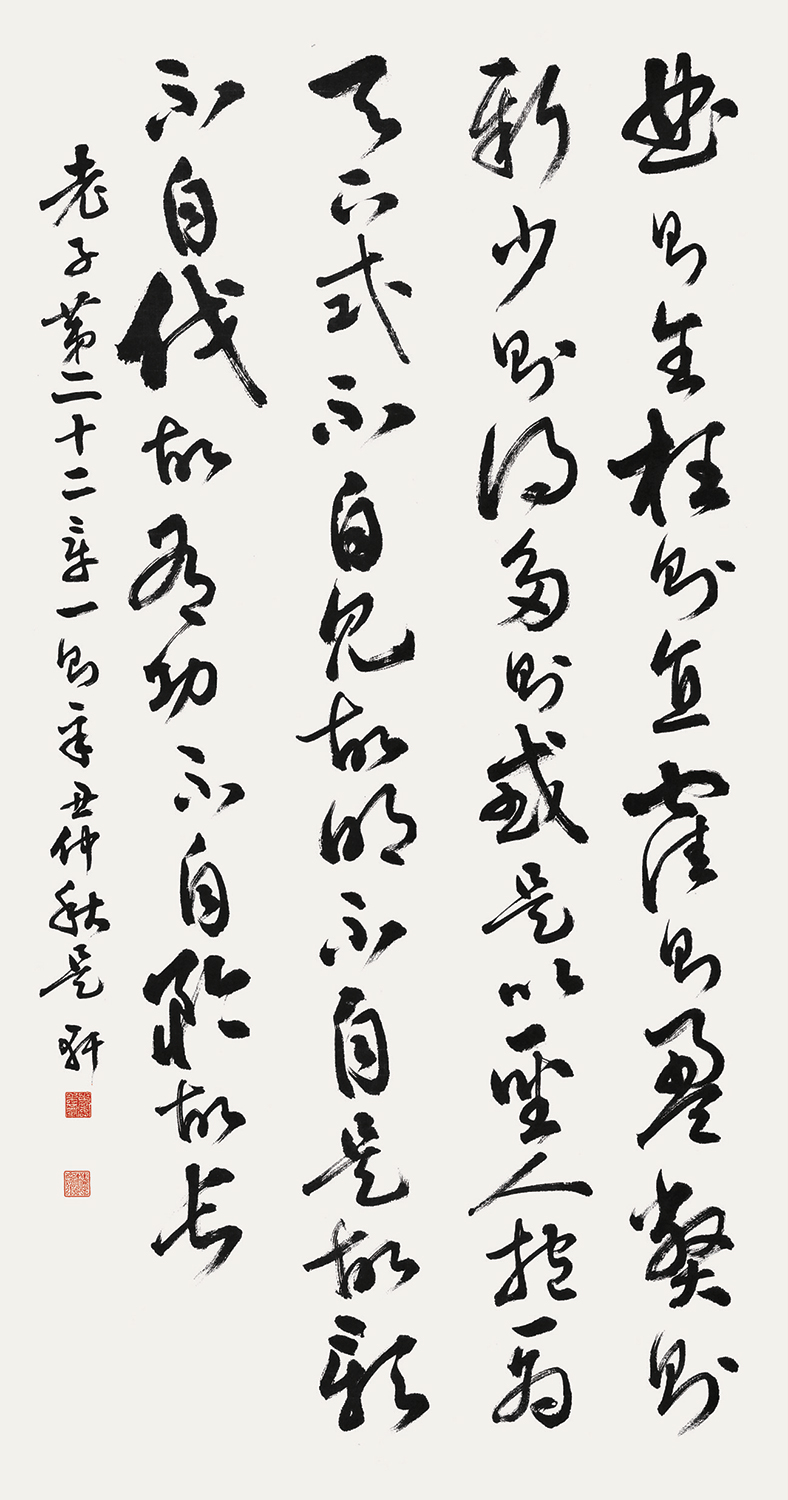 曲则全枉则直窪则盈弊则
新少则得多则惑是以圣人抱一为
天下式不自见故明不自是故彰
不自伐故有功不自矜故长
老子第二十二章一则辛丑仲秋是轩